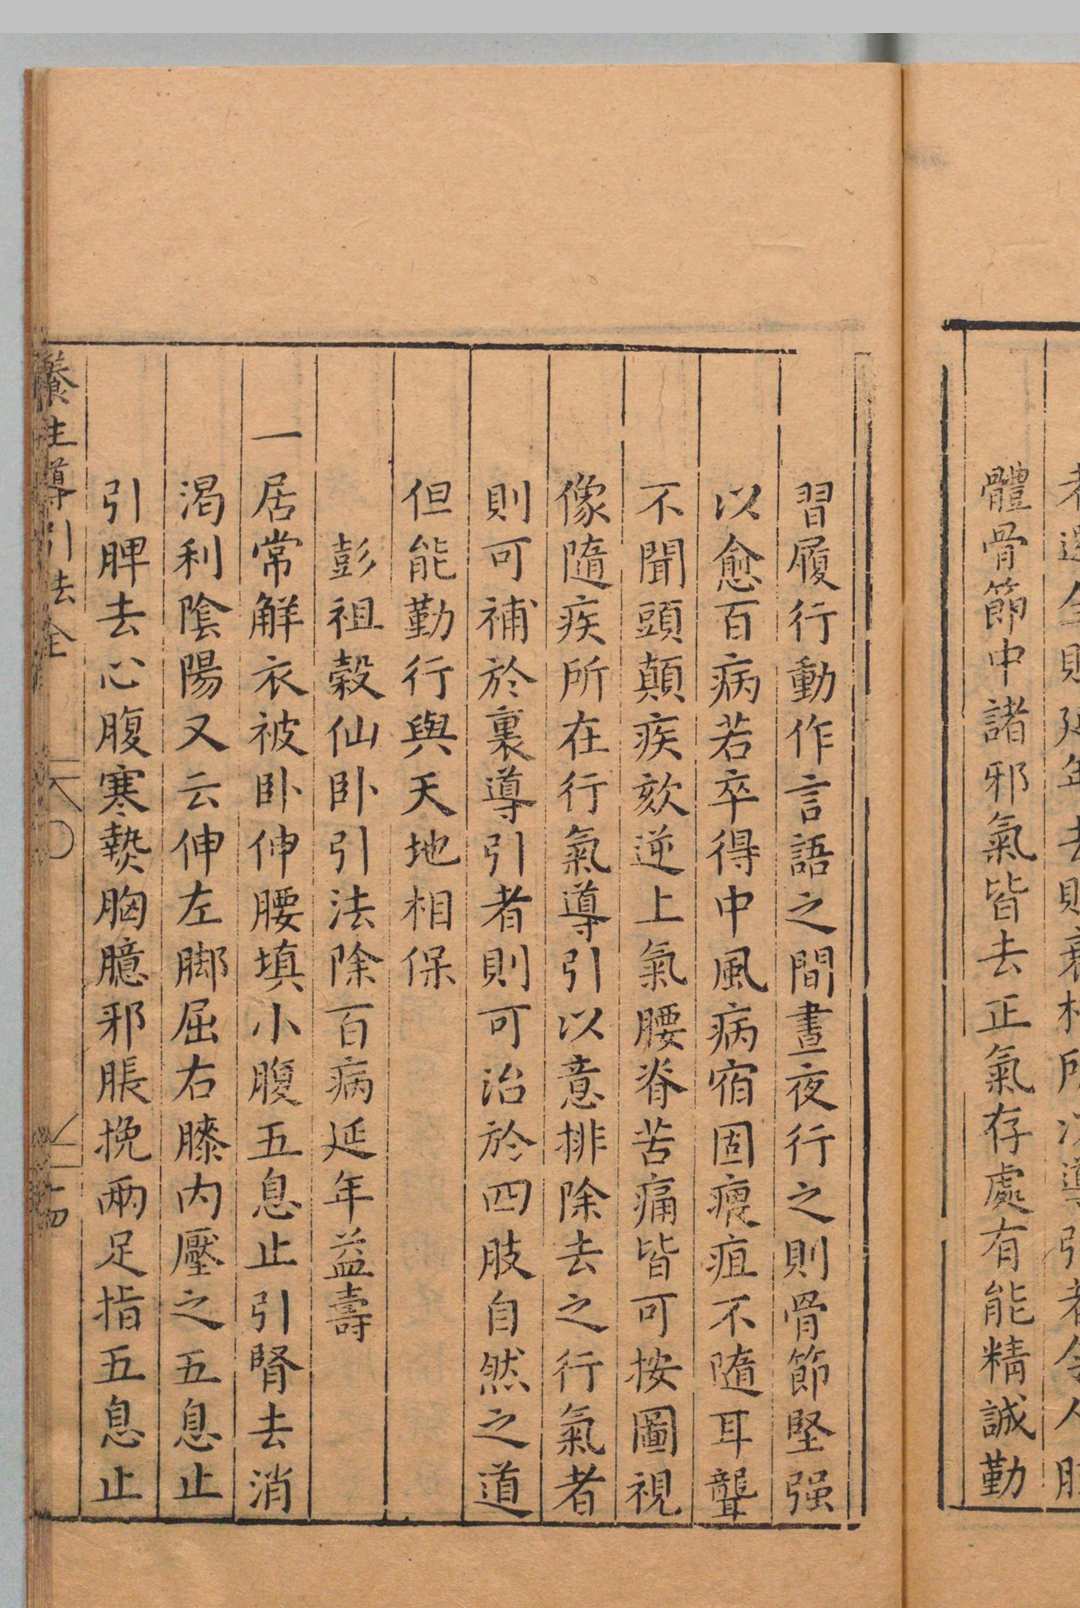 體骨節中諸邪氣皆去正氣存處有能精誠勤
習履行動作言語之間晝夜行之則骨節堅强
以愈百病若卒得中風病宿固瘬疽不隨耳聾
不聞頭顛疾欬逆上氣腰脊苦痛皆可按圖視
像隨疾所在行氣導引以意排除去之行氣者
則可補於裏導引者則可治於四肢自然之道
但能勤行與天地相保
彭祖穀仙卧引法除百病延年益壽
一居常解衣被卧伸腰填小腹五息止引腎去消
渴利陰陽又云伸左脚屈右膝內壓之五息止
引脾去心腹寒熱胸臆邪脹挽兩足指五息止
養生導引法全